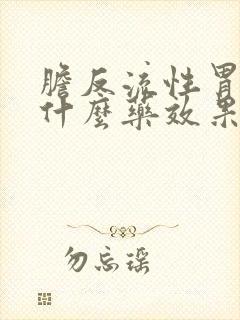 膽反流性胃
什麼藥效果
勿忘谣